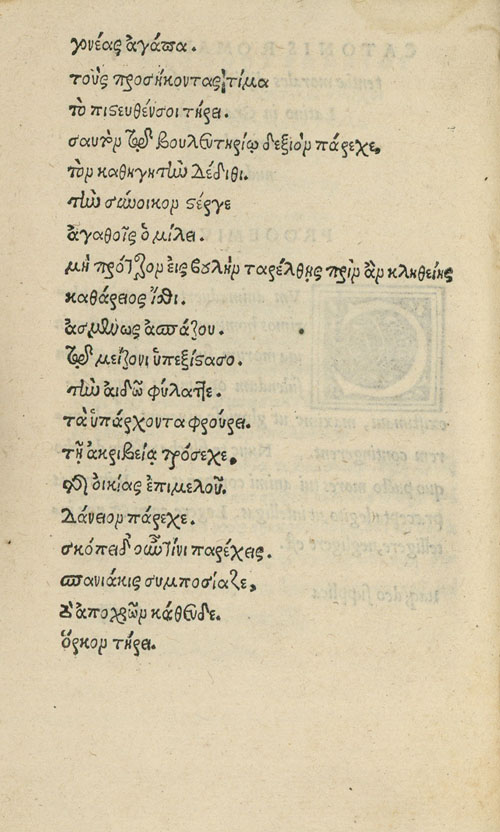 γονέας ἀγάπα.
τοὺς προσήκοντας τίμα
τὸ πιστευθέν σοι τήρει.
σαυτὸν τῷ βουλευτηρίῳ δεξιὸν πάρεχε,
τὸν καθηγητὴν δέδιθι.
τὴν σύνοικον στέργε
ἀγαθοῖς ὁμίλει.
μὴ πρότερον εἰς βουλὴν παρέλθῃς πρὶν ἂν κληθείης
καθάρειος ἴσθι.
ἀσμένως ἀσπάζου.
τῷ μείζονι ὑπεξίστασο.
τὴν αἰδῶ φύλαττε.
τὰ ὑπάρχοντα φρούρει.
τῇ ἀκριβείᾳ πρόσεχε,
τῆς οἰκίας ἐπιμελοῦ.
δάνειον πάρεχε.
σκόπει δ ᾧτινι παρέχεις.
σπανιάκις συμποσίαζε,
ἀποχρῶν κάθευδε.
ὅρκον τήρει.